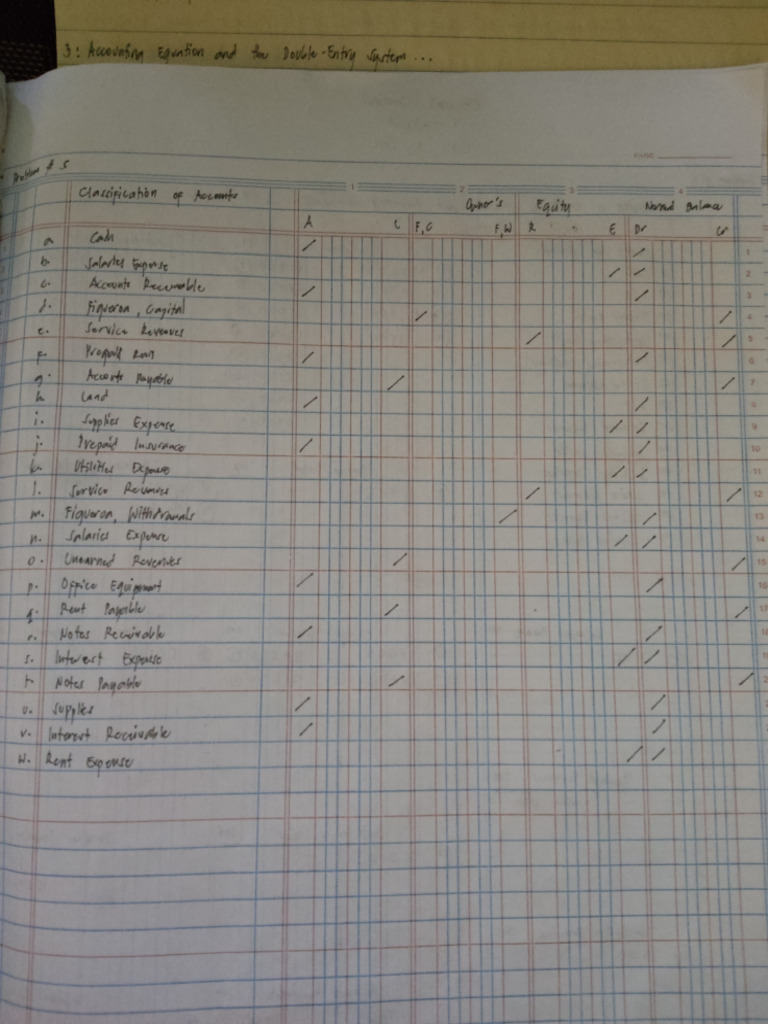 3: Accounting Equation and the Double-Entry System ...
NAME
Problem # 5
1 2 3 4
Classification of Accounts Owner's Equity Normal Balance
A L F, C F, W R E Dr Cr
a. Cash / / 1
b. Salaries Expense / / 2
c. Accounts Receivable / / 3
d. Figueroa, Capital / / 4
e. Service Revenues / / 5
f. Prepaid Rent / / 6
g. Accounts Payable / / 7
h. Land / / 8
i. Supplies Expense / / 9
j. Prepaid Insurance / / 10
k. Utilities Expense / / 11
l. Service Revenues / / 12
m. Figueroa, Withdrawals / / 13
n. Salaries Expense / / 14
o. Unearned Revenues / / 15
p. Office Equipment / / 16
q. Rent Payable / / 17
r. Notes Receivable / / 18
s. Interest Expense / / 19
t. Notes Payable / / 2
u. Supplies / /
v. Interest Receivable / /
w. Rent Expense / /